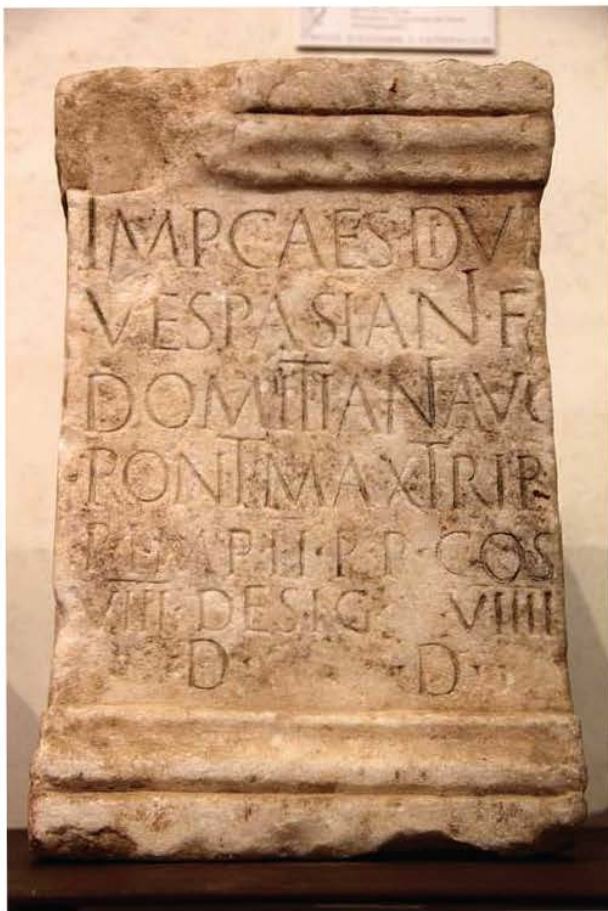 IMP CAES DIVI
VESPASIANI F
DOMITIANI AVG
PONT MAX TRIB
P II IMP II · P · P · COS
VIII DESIG VIIII
D D